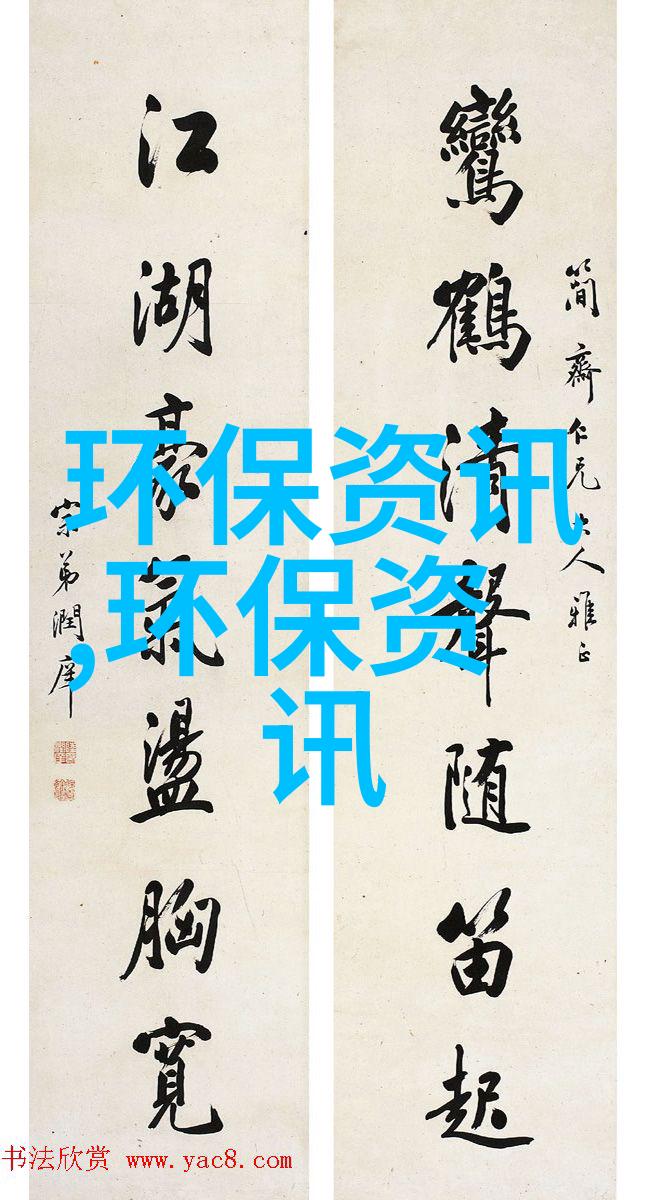 鸞鶴清聲随笛起
簡齋仁兄大人雅正
江湖豪氣盪胸寬
宗弟潤庠
环保资讯
,环保资
讯
书法欣赏 www.yac8.com